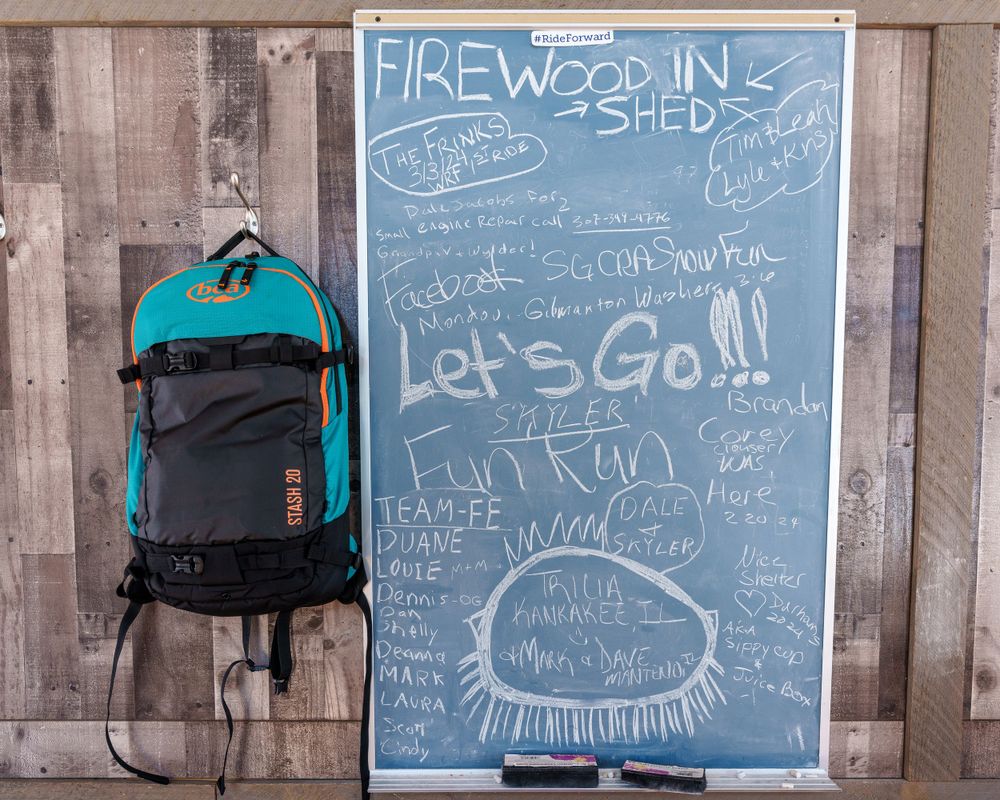 #RideForward
FIREWOOD IN
SHED
THE FRINKS
3/3/24 1ST RIDE
WRF
Tim & Leah
Lyle + Kris
Dale Jacobs For
Small engine Repair call 307-399-4776
Facebook
SGCRASnowFun
Mondovi - Gilmanton Washers 3-6
Let's Go!!!
Brandon
SKYLER
Fun Run
Corey
WAS
Here
2 20 24
TEAM-FE
DUANE
LOUIE M+M
Dennis-OG
Dan
Shelly
Deanna
MARK
LAURA
Scott
Cindy
DALE
+
SKYLER
TRICIA
KANKAKEE, IL
+ MARK & DAVE
MANTENO IL
Nice
Shelter
Durham's
2024
AKA
Sippy cup
*
Juice Box
bca
STASH 20